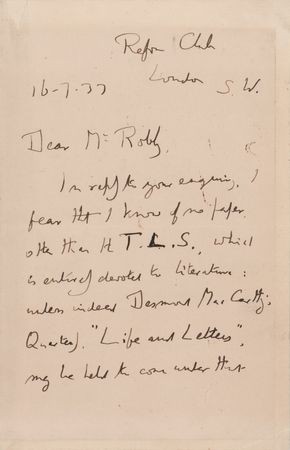 Reform Club
London S.W.
16-7-33
Dear Mr Robb,
In reply to your enquiry, I
fear that I know of no paper
other than the T.L.S., which
is entirely devoted to literature:
unless indeed Desmond MacCarthy's
Quarterly, "Life and Letters",
may be held to come under that